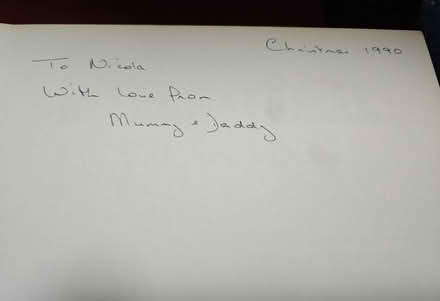 Christmas 1990
To Nicola
With love from
Mummy & Daddy